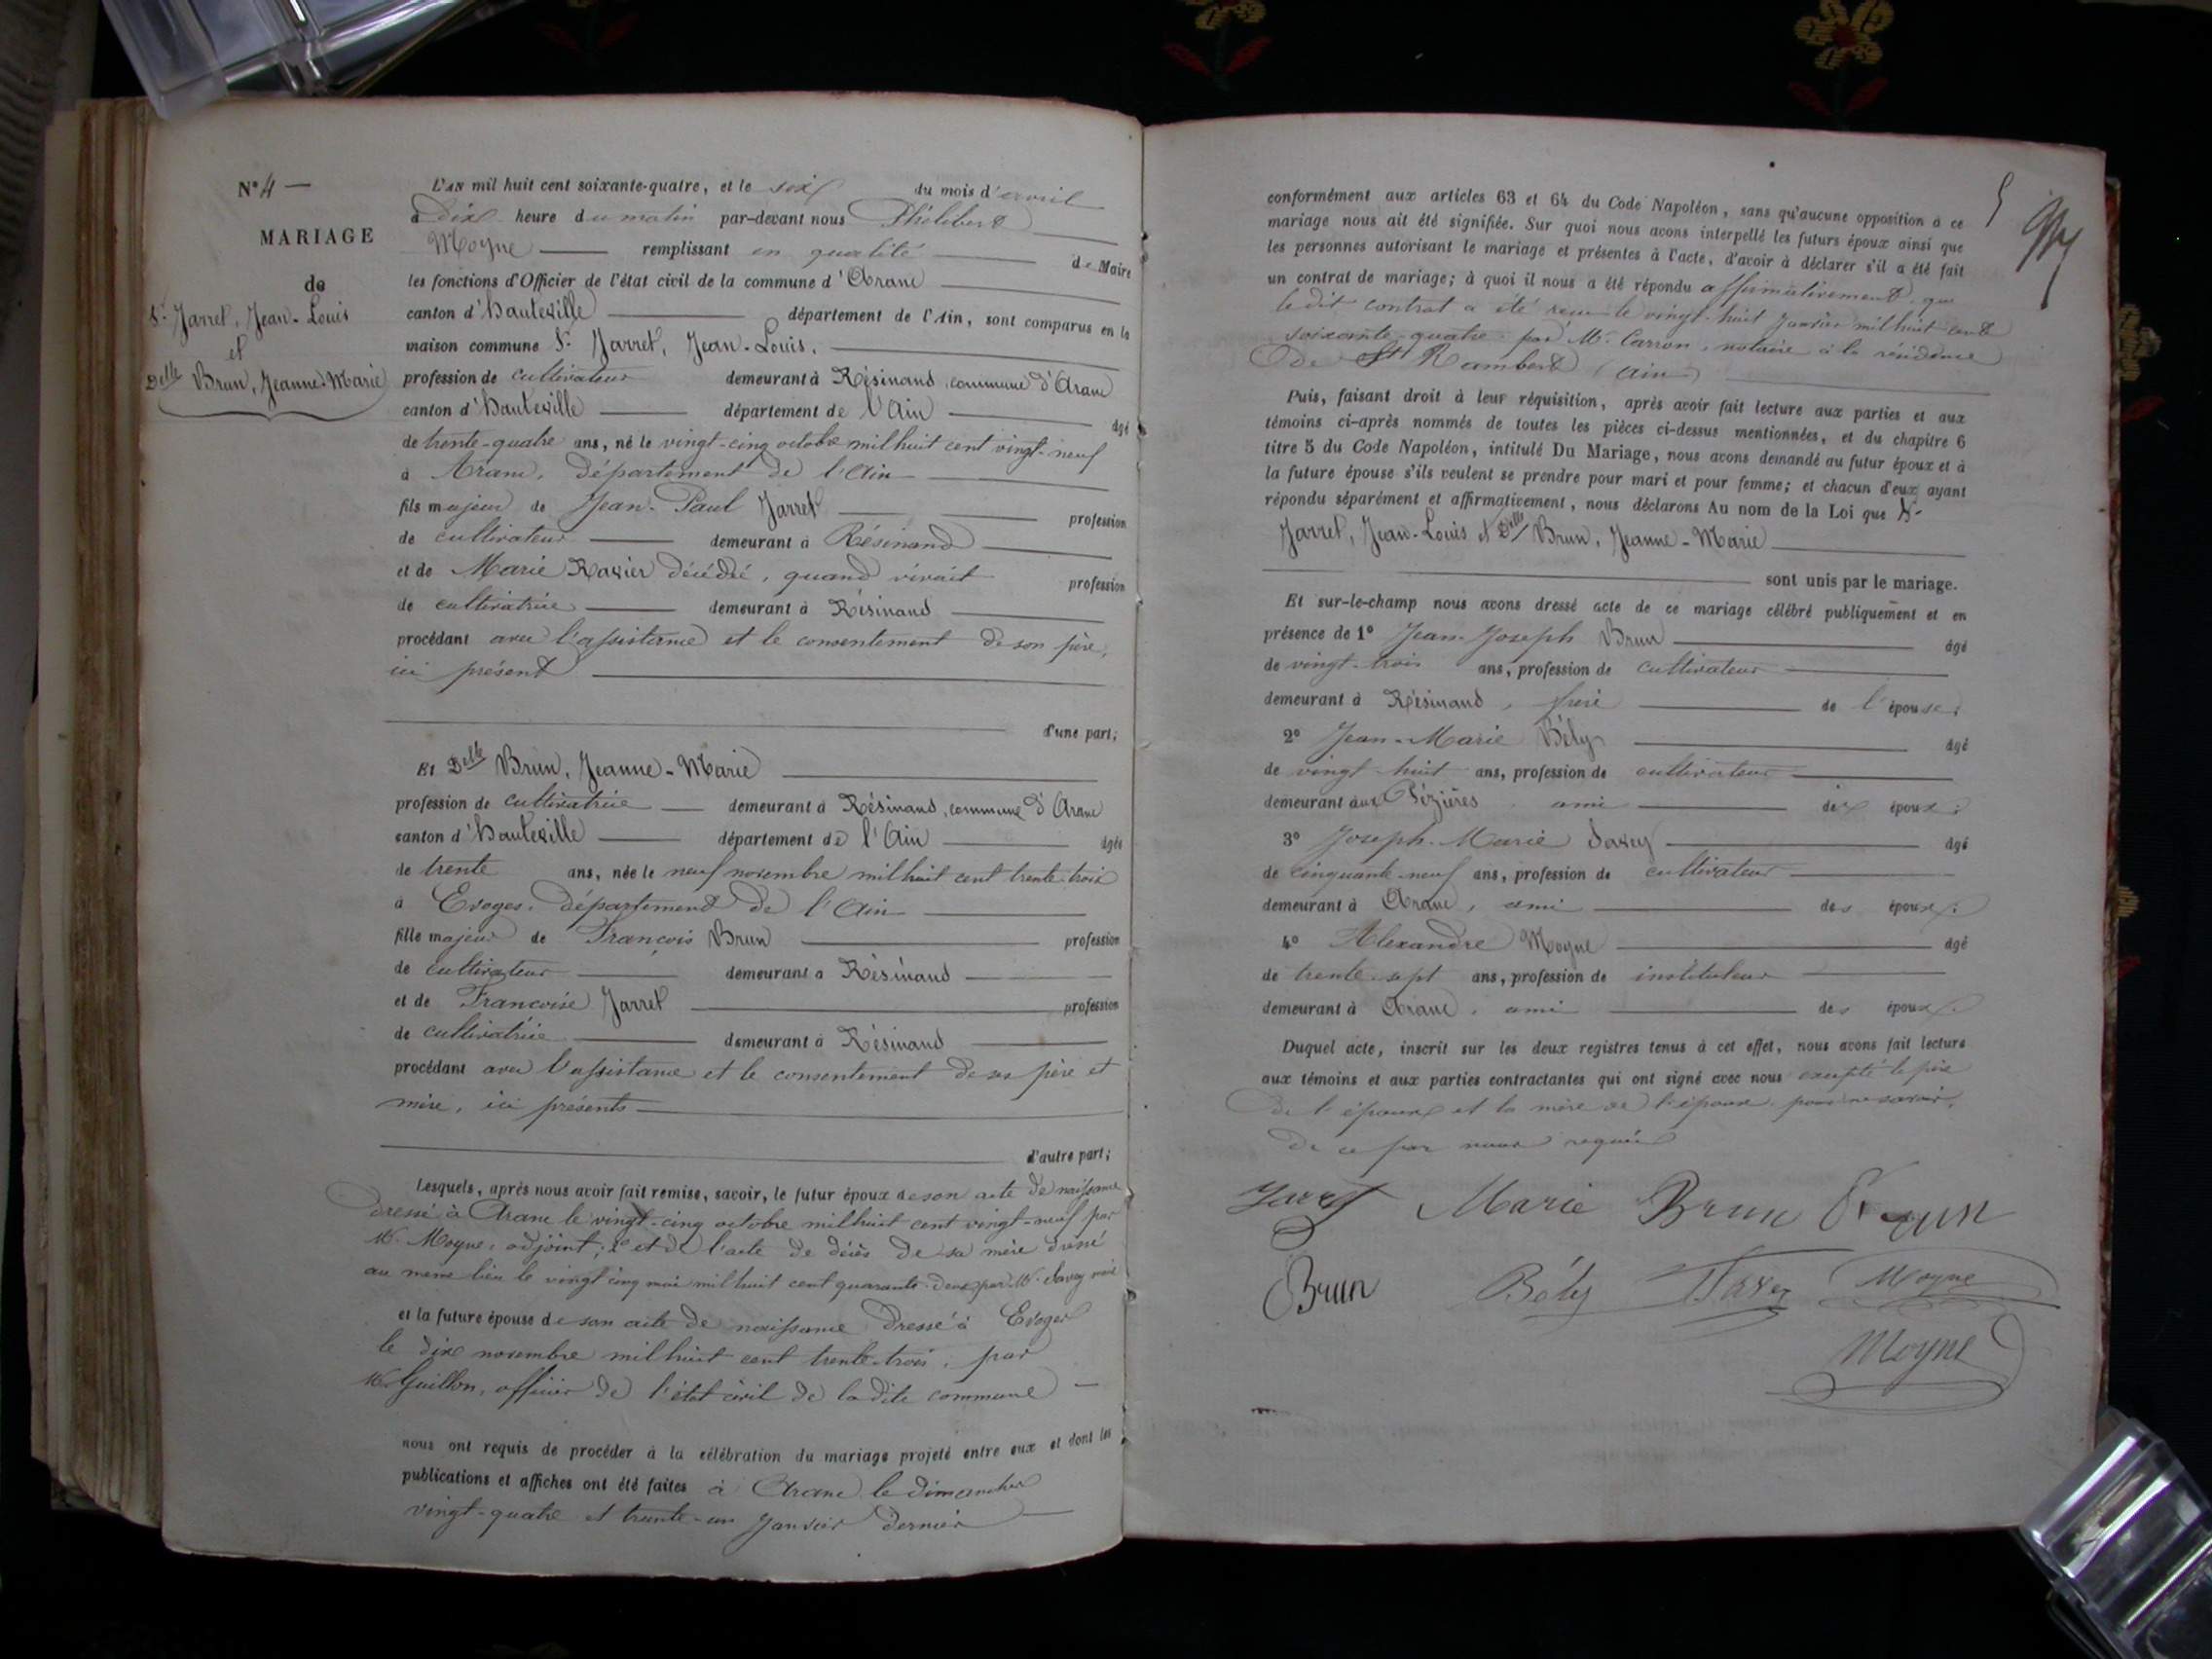 N° 4 —
MARIAGE
de
Sr Jarret, Jean-Louis
et
Delle Brun, Jeanne-Marie
L'AN mil huit cent soixante-quatre, et le six du mois d'avril
à dix heure du matin par-devant nous Philibert
Moyne remplissant en qualité de Maire
les fonctions d'Officier de l'état civil de la commune d'Aranc
canton d'Hauteville département de l'Ain, sont comparus en la
maison commune Sr Jarret, Jean-Louis,
profession de cultivateur demeurant à Résinand, commune d'Aranc
canton d'Hauteville département de l'Ain âgé
de trente-quatre ans, né le vingt-cinq octobre mil huit cent vingt-neuf
à Aranc, département de l'Ain
fils majeur de Jean-Paul Jarret profession
de cultivateur demeurant à Résinand
et de Marie Ravier décédée, quand vivait profession
de cultivatrice demeurant à Résinand
procédant avec l'assistance et le consentement de son père,
ici présent
d'une part;
Et Delle Brun, Jeanne-Marie
profession de cultivatrice demeurant à Résinand, commune d'Aranc
canton d'Hauteville département de l'Ain âgée
de trente ans, née le neuf novembre mil huit cent trente-trois
à Evoges, département de l'Ain
fille majeur de François Brun profession
de cultivateur demeurant à Résinand
et de Françoise Jarret profession
de cultivatrice demeurant à Résinand
procédant avec l'assistance et le consentement de ses père et
mère, ici présents
d'autre part;
Lesquels, après nous avoir fait remise, savoir, le futur époux de son acte de naissance
dressé à Aranc le vingt-cinq octobre mil huit cent vingt-neuf par
Mr Moyne, adjoint; et de l'acte de décès de sa mère dressé
au même lieu le vingt cinq mai mil huit cent quarante-deux par Mr Savey maire
et la future épouse de son acte de naissance dressé à Evoges
le dix novembre mil huit cent trente-trois, par
Mr Guillon, officier de l'état civil de la dite commune —
nous ont requis de procéder à la célébration du mariage projeté entre eux et dont les
publications et affiches ont été faites à Aranc le dimanche
vingt-quatre et trente-un Janvier dernier
5
conformément aux articles 63 et 64 du Code Napoléon, sans qu'aucune opposition à ce
mariage nous ait été signifiée. Sur quoi nous avons interpellé les futurs époux ainsi que
les personnes autorisant le mariage et présentes à l'acte, d'avoir à déclarer s'il a été fait
un contrat de mariage; à quoi il nous a été répondu affirmativement, que
le dit contrat a été reçu le vingt-huit Janvier mil huit cent
soixante-quatre par Mr Carron, notaire à la résidence
de St Rambert (Ain)
Puis, faisant droit à leur réquisition, après avoir fait lecture aux parties et aux
témoins ci-après nommés de toutes les pièces ci-dessus mentionnées, et du chapitre 6
titre 5 du Code Napoléon, intitulé Du Mariage, nous avons demandé au futur époux et à
la future épouse s'ils veulent se prendre pour mari et pour femme; et chacun d'eux ayant
répondu séparément et affirmativement, nous déclarons Au nom de la Loi que Sr
Jarret, Jean-Louis et Delle Brun, Jeanne-Marie
sont unis par le mariage.
Et sur-le-champ nous avons dressé acte de ce mariage célébré publiquement et en
présence de 1° Jean-Joseph Brun âgé
de vingt-trois ans, profession de cultivateur
demeurant à Résinand, frère de l'épouse;
2° Jean-Marie Bély âgé
de vingt-huit ans, profession de cultivateur
demeurant aux Pézières, ami des époux;
3° Joseph-Marie Savey âgé
de cinquante-neuf ans, profession de cultivateur
demeurant à Aranc, ami des époux;
4° Alexandre Moyne âgé
de trente-sept ans, profession de instituteur
demeurant à Aranc, ami des époux.
Duquel acte, inscrit sur les deux registres tenus à cet effet, nous avons fait lecture
aux témoins et aux parties contractantes qui ont signé avec nous excepté le père
de l'époux et la mère de l'épouse pour ne savoir,
de ce par nous requis
Jarret Marie Brun Brun
Brun Bély Savey Moyne
Moyne